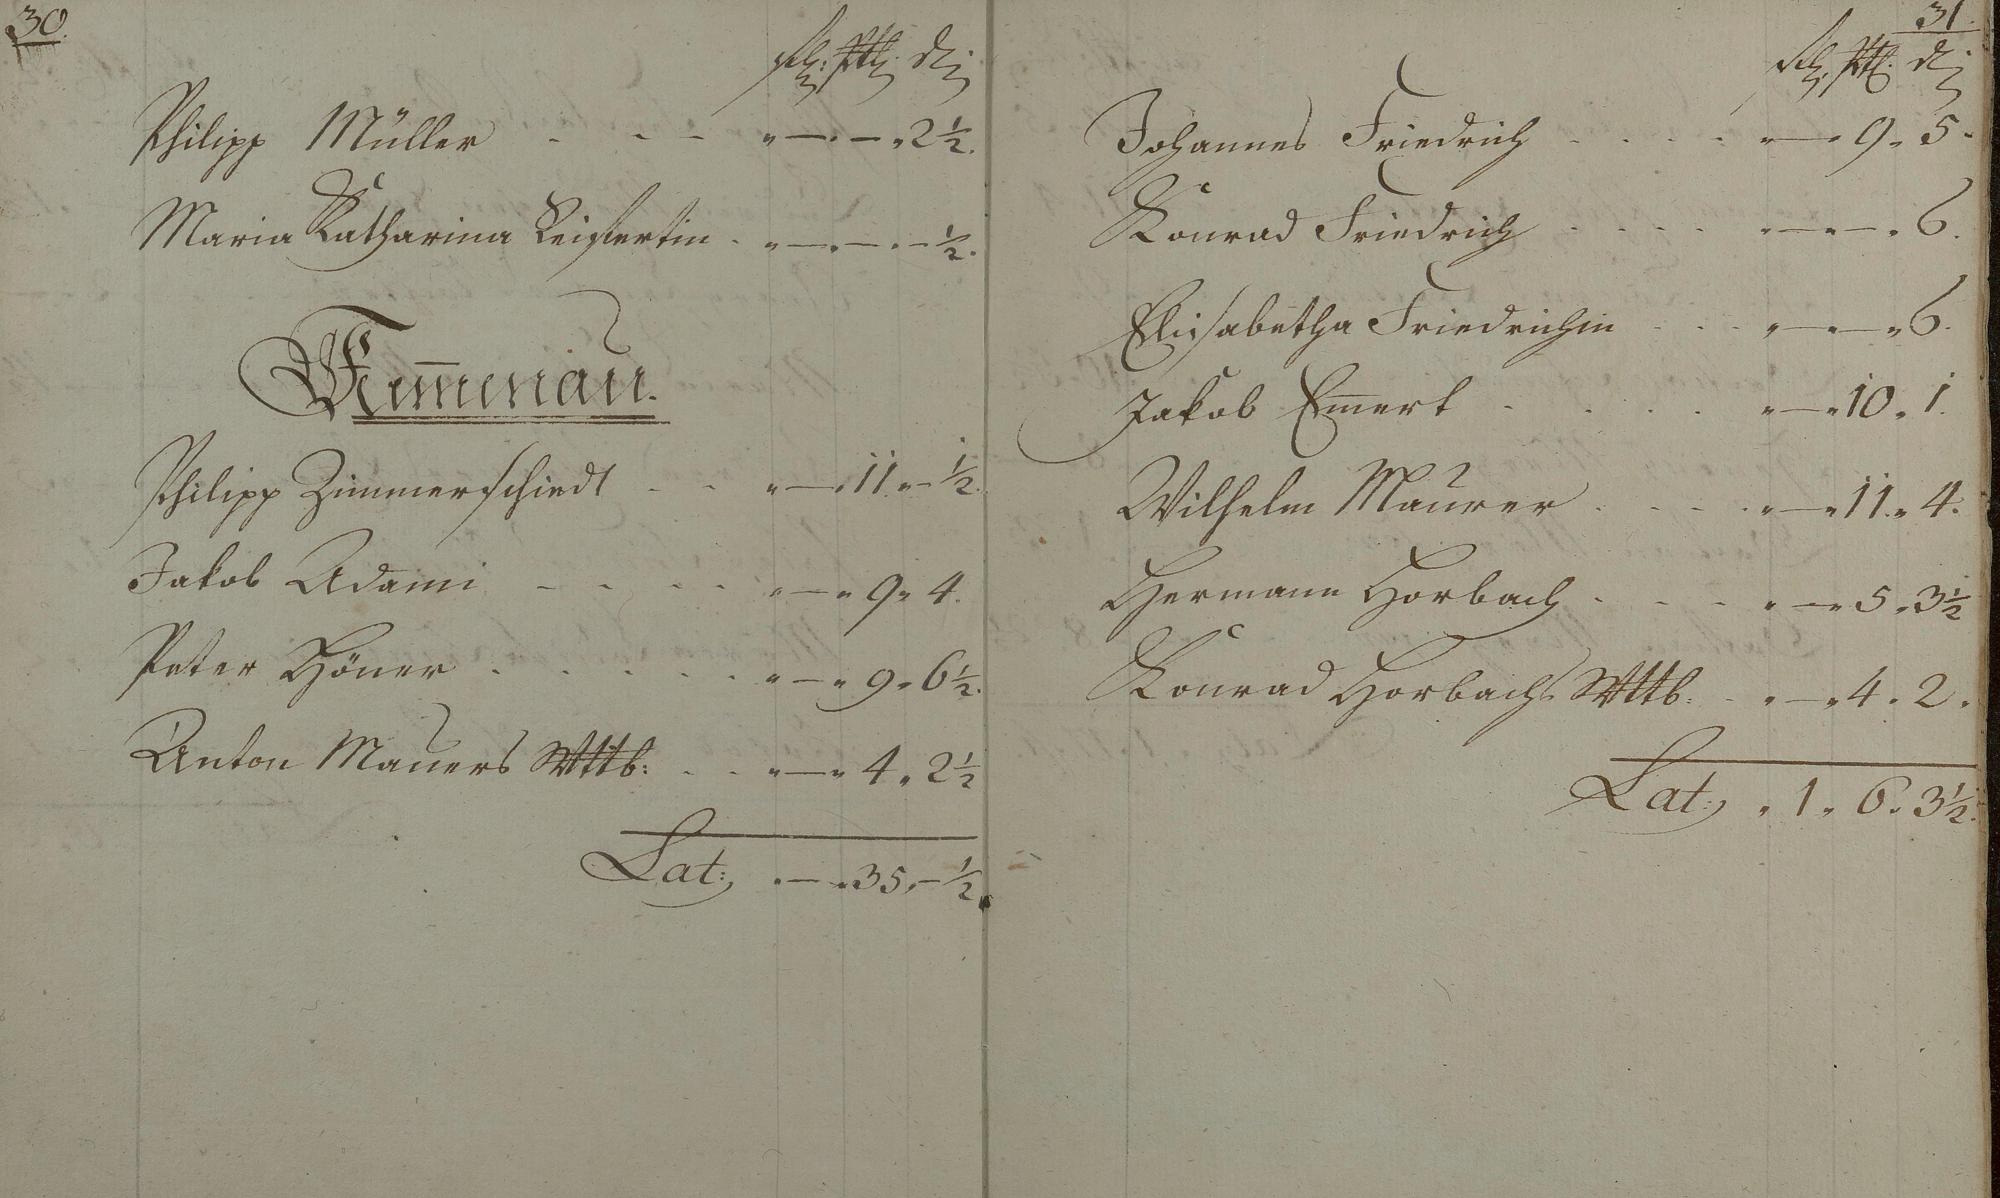 30.
Philipp Müller - - - " — . — " 2 ½.
Maria Katharina Leisertin . " — . — . — ½.
Kem̅enau.
Philipp Zimmerschiedt - - " — . 11. " — ½.
Jakob Adami - - - - " — " 9 " 4.
Peter Höner . . . . . " — " 9 " 6 ½.
Anton Mauers Wttb: . . " — " 4 " 2 ½
Lat: . — " 35. — ½.
31.
Johannes Friedrich . . . . " — " 9. 5.
Konrad Friedrich . . . . " — " — " 6.
Elisabetha Friedrichin . . . " — " — " 6.
Jakob Em̅ert . . . . " — " 10 " 1.
Wilhelm Maurer . . . . " — " 11. " 4.
Hermann Horbach . . . . " — " 5 " 3 ½
Konrad Horbachs Wttb: . " — " 4 . 2 .
Lat: " 1 " 6. 3 ½.